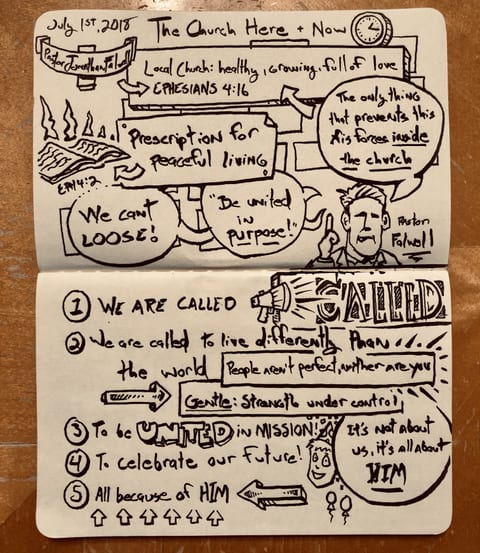 July 1st, 2018
The Church Here + Now
Pastor Jonathan Falwell
Local Church: healthy, growing, full of love
EPHESIANS 4:16
The only thing
that prevents this
is forces inside
the church
"Prescription for
peaceful living"
EPH 4:2
We can't
LOOSE!
"Be united
in
purpose!"
Pastor
Falwell
1 WE ARE CALLED
CALLED
2 We are called to live differently than
the world
People aren't perfect, neither are you
Gentle: Strength under control
3 To be UNITED in MISSION!
4 To celebrate our future!
5 All because of HIM
It's not about
us, it's all about
HIM